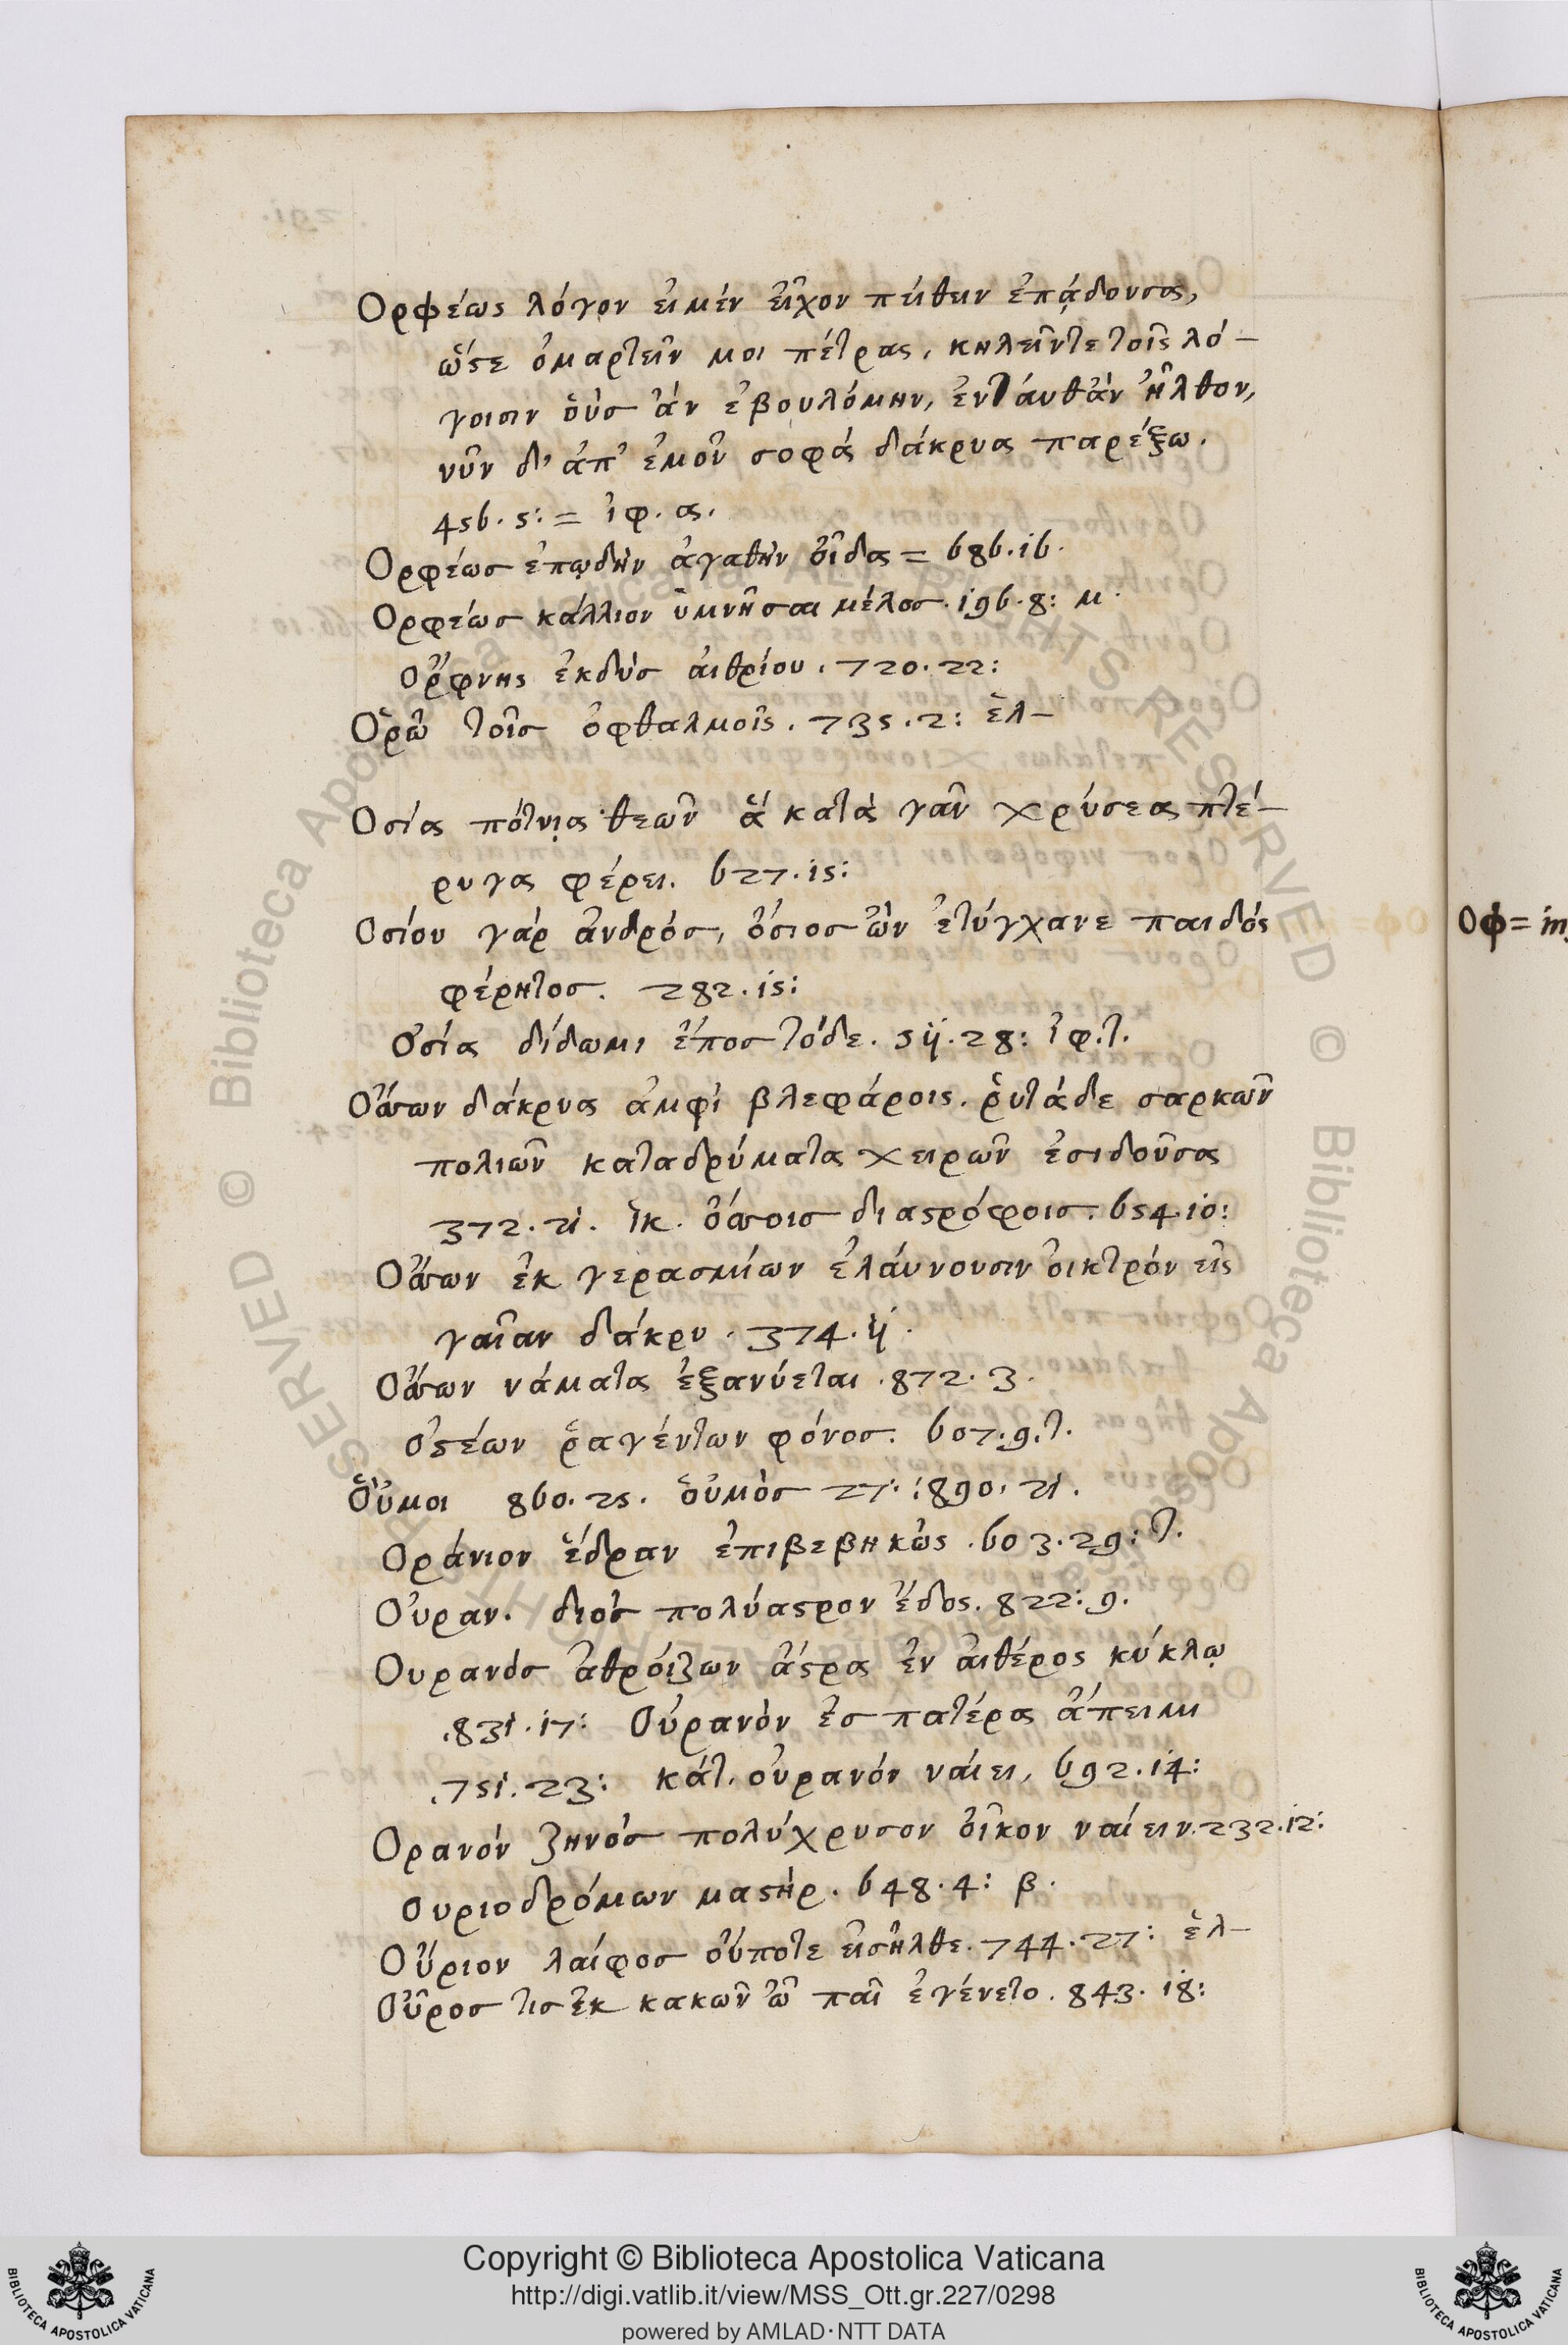 Ορφέως λόγον ειμέν εἶχον πείθειν ἐπᾴδουσα,
ὥστε ὁμαρτεῖν μοι πέτρας, κηλεῖντε τοῖς λό-
γοισιν οὓσ ἂν ἐβουλόμην, ἐνταύθ' ἂν ἦλθον,
νῦν δ' ἀπ' ἐμοῦ σοφά δάκρυα παρέξω.
456. 5: = ἰφ. α.
Ορφέωσ ἐπῳδὴν ἀγαθὴν οἶδα = 686. 16.
Ορφέωσ κάλλιον ὑμνῆσαι μέλοσ. 196. 8: μ.
Ορφνης ἐκδὺσ αἰθρίου. 720. 22:
Ὁρῶ τοῖσ ὀφθαλμοῖς. 735. 2: ἑλ-
Οσία πότνια θεῶν ἅ κατὰ γᾶν χρύσεα πτέ-
ρυγα φέρει. 627. 15:
Οσίου γάρ ἀνδρόσ, ὅσιοσ ὢν ἐτύγχανε παιδός
φέρητοσ. 282. 15:
Οσία δίδωμι ἔποσ τόδε. 511. 28: ἰφ. τ.
Οσσων δάκρυα ἀμφὶ βλεφάροις. ῥυτάδε σαρκῶν
πολιῶν καταδρύματα χειρῶν ἐσιδοῦσα
372. 21. ἱκ. ὄσσοισ διαστρόφοισ. 654. 10:
Οσσων ἐκ γερασμίων ἐλαύνουσιν οἰκτρόν εἰς
γαῖαν δάκρυ. 374. 11.
Οσσων νάματα ἐξανύεται. 872. 3.
Οστέων ῥαγέντων φόνοσ. 607. 9. τ.
Οὕμοι 860. 25. οὑμὸσ 27. : 890. 21.
Οράνιον ἕδραν ἐπιβεβηκὼς. 603. 29: τ.
Ουραν. διὸσ πολύαστρον ἕδος. 822: 9.
Ουρανόσ ἀθροίζων ἄστρα ἐν αἰθέρος κύκλῳ
.831. 17: Οὐρανὸν ἐσ πατέρα ἄπειμι
.751. 23: κάτ. οὐρανόν ναίει, 692. 14:
Ορανόν ζηνόσ πολύχρυσον οἶκον ναίειν. 232. 12:
Ουριοδρόμων μαστὴρ. 648. 4: β.
Οὔριον λαίφοσ οὔποτε εἰσῆλθε. 744. 27: ἑλ-
Οὖροσ τισ ἐκ κακῶν ὦ παῖ ἐγένετο. 843. 18:
Οφ=
Copyright © Biblioteca Apostolica Vaticana
http://digi.vatlib.it/view/MSS_Ott.gr.227/0298
powered by AMLAD·NTT DATA